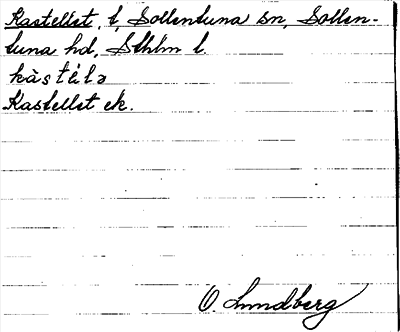 Kastellet, t, Sollentuna sn, Sollen-
tuna hd, Sthlm l.
kàstélə
Kastellet ek.
O. Lundberg